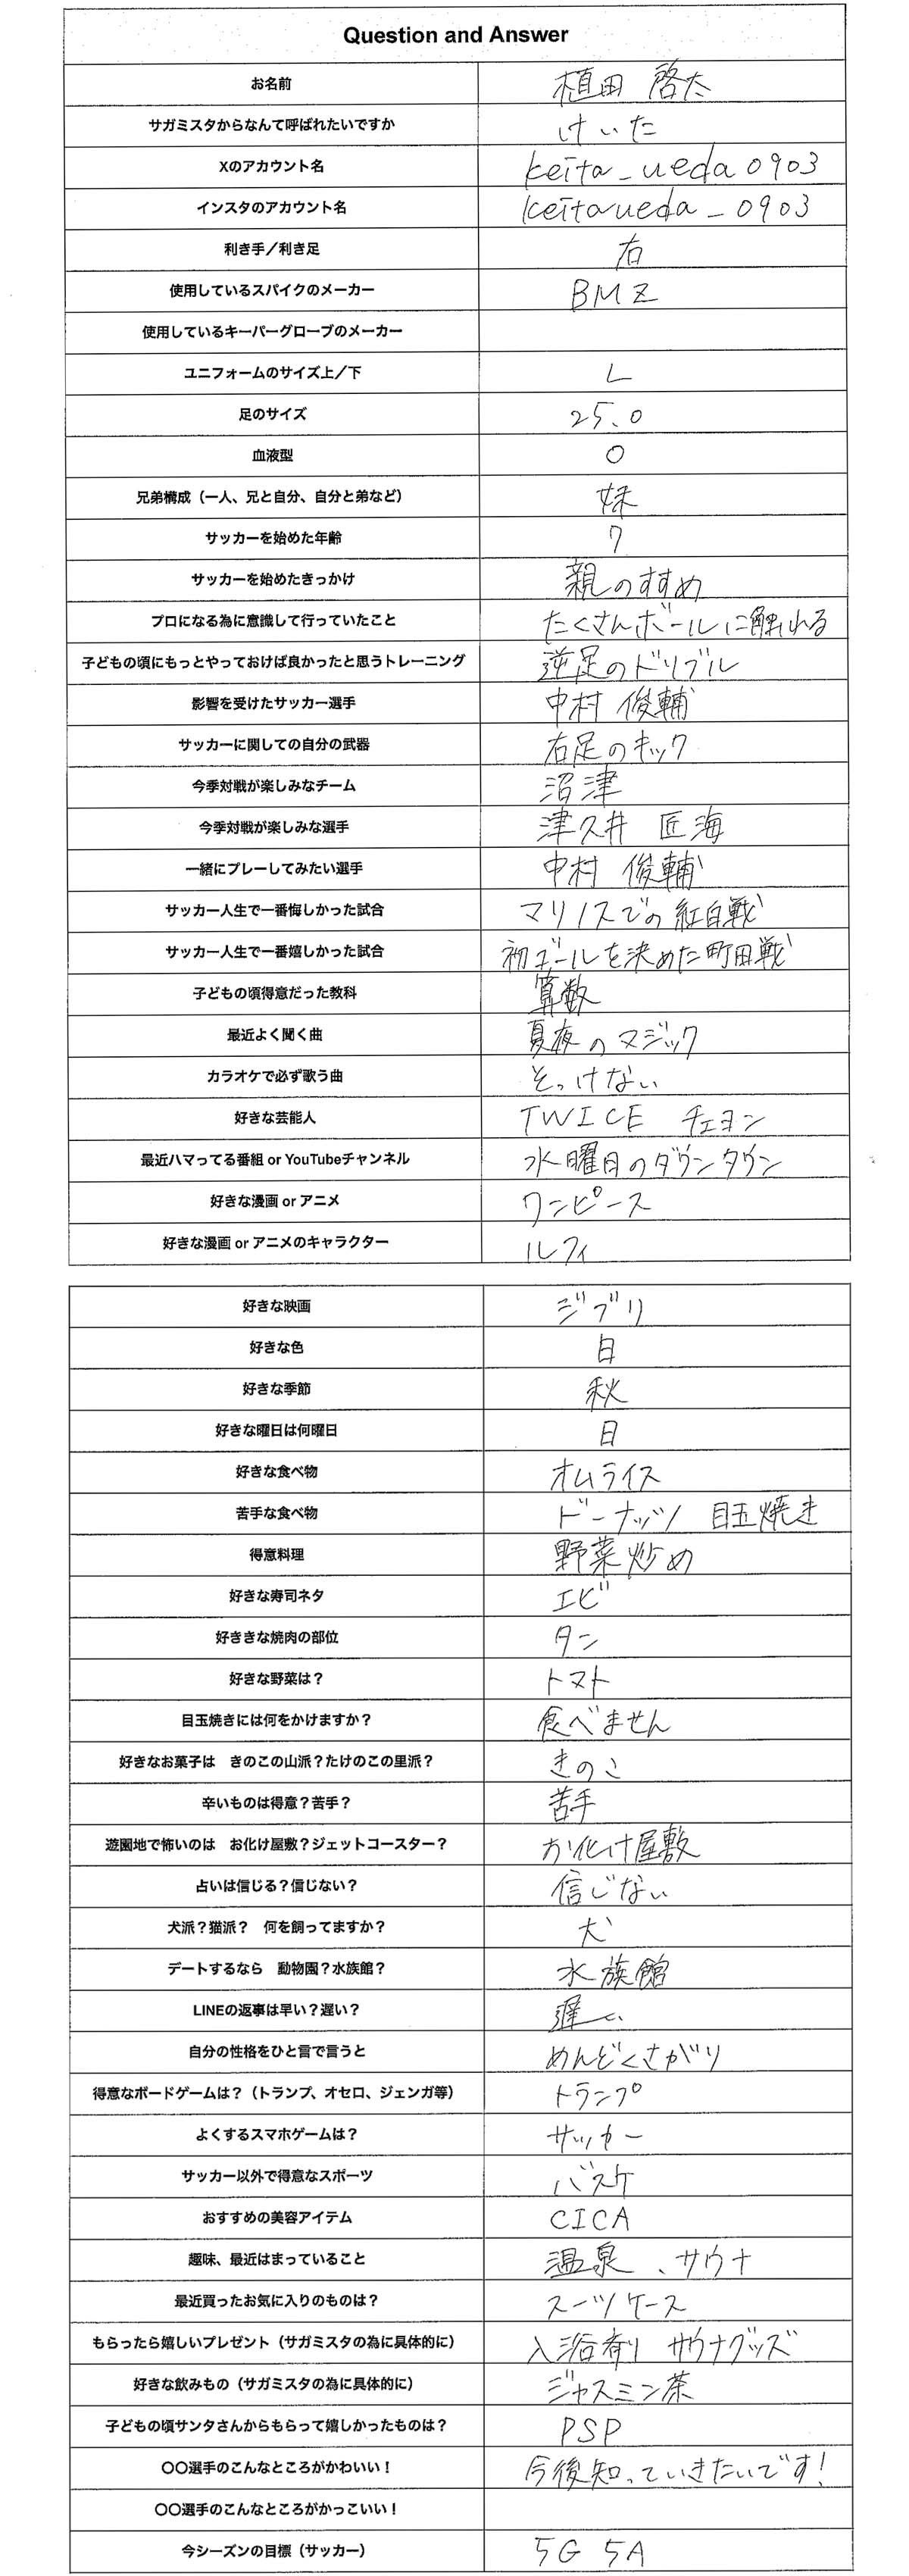 Question and Answer
お名前 植田 啓太
サガミスタからなんて呼ばれたいですか けいた
Xのアカウント名 keita_ueda0903
インスタのアカウント名 keitaueda_0903
利き手／利き足 右
使用しているスパイクのメーカー BMZ
使用しているキーパーグローブのメーカー
ユニフォームのサイズ上／下 L
足のサイズ 25.0
血液型 O
兄弟構成（一人、兄と自分、自分と弟など） 妹
サッカーを始めた年齢 7
サッカーを始めたきっかけ 親のすすめ
プロになる為に意識して行っていたこと たくさんボールに触れる
子どもの頃にもっとやっておけば良かったと思うトレーニング 逆足のドリブル
影響を受けたサッカー選手 中村 俊輔
サッカーに関しての自分の武器 右足のキック
今季対戦が楽しみなチーム 沼津
今季対戦が楽しみな選手 津久井 匠海
一緒にプレーしてみたい選手 中村 俊輔
サッカー人生で一番悔しかった試合 マリノスでの紅白戦
サッカー人生で一番嬉しかった試合 初ゴールを決めた町田戦
子どもの頃得意だった教科 算数
最近よく聞く曲 夏夜のマジック
カラオケで必ず歌う曲 そっけない
好きな芸能人 TWICE チェヨン
最近ハマってる番組 or YouTubeチャンネル 水曜日のダウンタウン
好きな漫画 or アニメ ワンピース
好きな漫画 or アニメのキャラクター ルフィ
好きな映画 ジブリ
好きな色 白
好きな季節 秋
好きな曜日は何曜日 日
好きな食べ物 オムライス
苦手な食べ物 ドーナッツ 目玉焼き
得意料理 野菜炒め
好きな寿司ネタ エビ
好ききな焼肉の部位 タン
好きな野菜は？ トマト
目玉焼きには何をかけますか？ 食べません
好きなお菓子は　きのこの山派？たけのこの里派？ きのこ
辛いものは得意？苦手？ 苦手
遊園地で怖いのは　お化け屋敷？ジェットコースター？ お化け屋敷
占いは信じる？信じない？ 信じない
犬派？猫派？　何を飼ってますか？ 犬
デートするなら　動物園？水族館？ 水族館
LINEの返事は早い？遅い？ 遅い
自分の性格をひと言で言うと めんどくさがり
得意なボードゲームは？（トランプ、オセロ、ジェンガ等） トランプ
よくするスマホゲームは？ サッカー
サッカー以外で得意なスポーツ バスケ
おすすめの美容アイテム CICA
趣味、最近はまっていること 温泉、サウナ
最近買ったお気に入りのものは？ スーツケース
もらったら嬉しいプレゼント（サガミスタの為に具体的に） 入浴剤 サウナグッズ
好きな飲みもの（サガミスタの為に具体的に） ジャスミン茶
子どもの頃サンタさんからもらって嬉しかったものは？ PSP
〇〇選手のこんなところがかわいい！ 今後知っていきたいです！
〇〇選手のこんなところがかっこいい！
今シーズンの目標（サッカー） 5G 5A